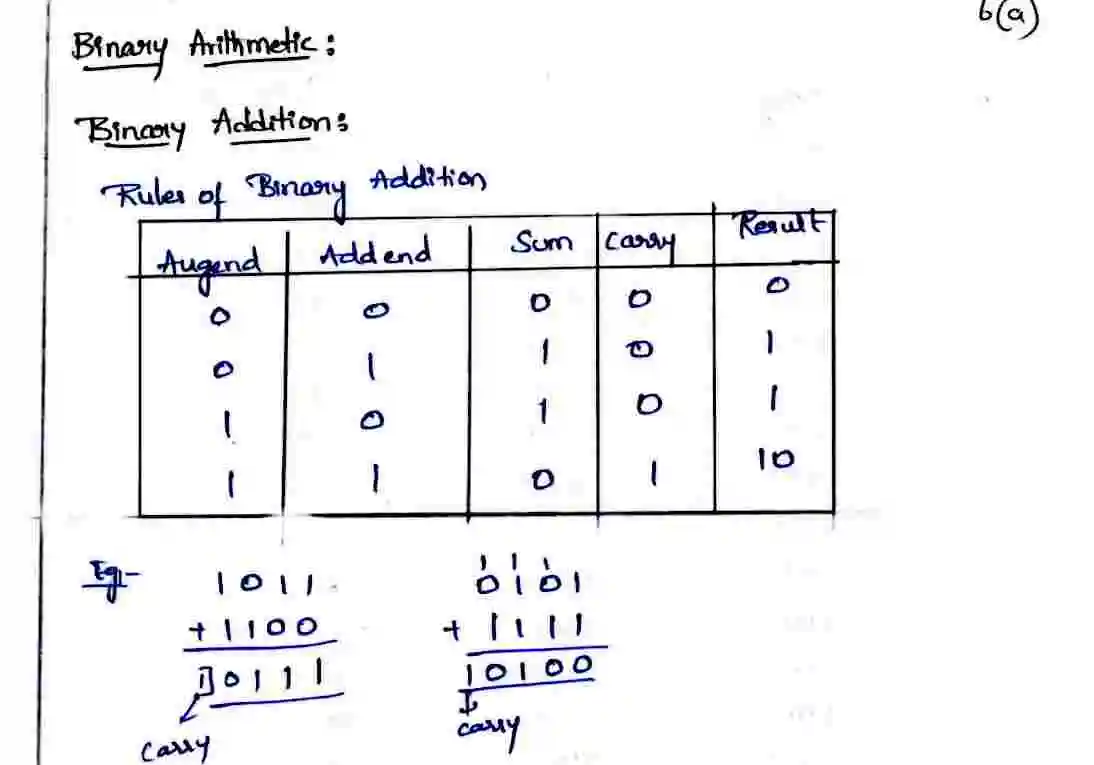 6(a)
Binary Arithmetic :
Binary Addition :
Rules of Binary Addition
Augend Addend Sum Carry Result
0 0 0 0 0
0 1 1 0 1
1 0 1 0 1
1 1 0 1 10
Eg:-
1 0 1 1
+ 1 1 0 0
1 0 1 1 1
Carry
1 1 1
0 1 0 1
+ 1 1 1 1
1 0 1 0 0
carry